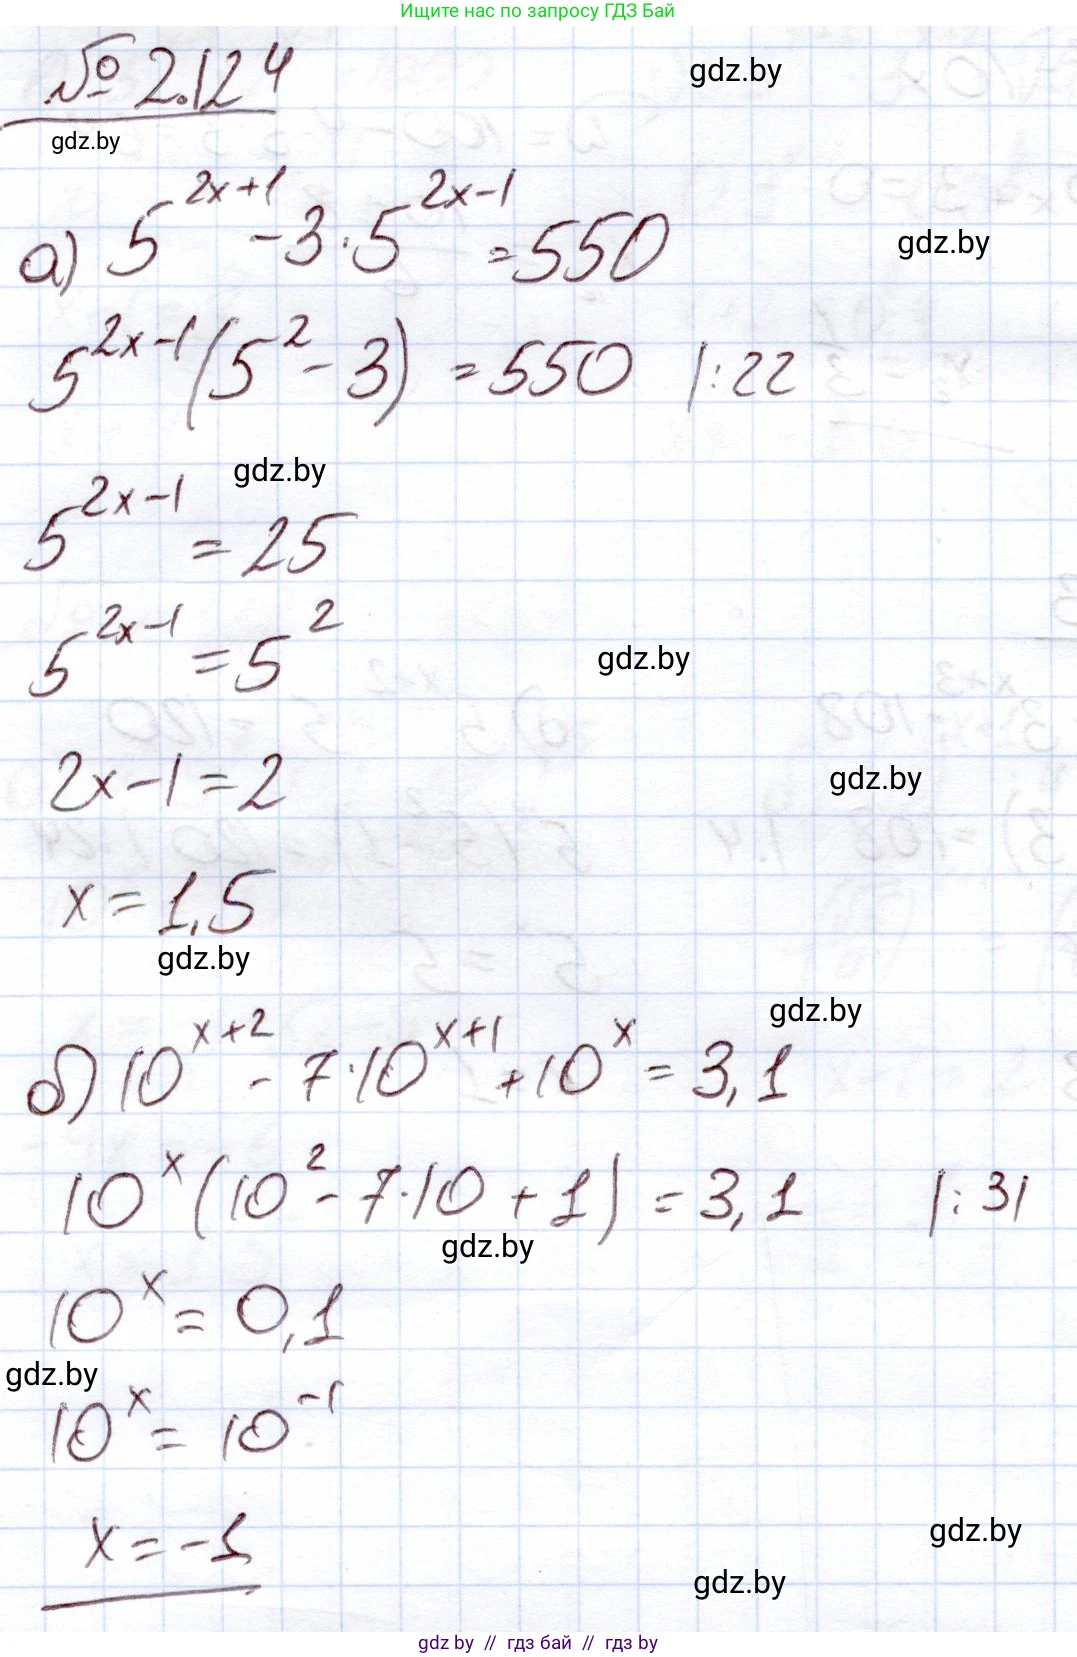 Ищите нас по запросу ГДЗ Бай
№ 2.124
gdz.by
gdz.by
а) 5^{2x+1} - 3·5^{2x-1} = 550
gdz.by
5^{2x-1}(5^2 - 3) = 550 |:22
gdz.by
5^{2x-1} = 25
5^{2x-1} = 5^2
gdz.by
2x-1=2
gdz.by
x = 1,5
gdz.by
gdz.by
б) 10^{x+2} - 7·10^{x+1} + 10^x = 3,1
10^x(10^2 - 7·10 + 1) = 3,1 |:31
gdz.by
10^x = 0,1
gdz.by
10^x = 10^{-1}
x = -1
gdz.by
gdz.by
gdz by // гдз бай // гдз by